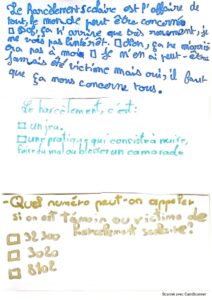 Le harcèlement scolaire est l'affaire de
tout, le monde peut être concerné
□ Bof, ça n'arrive que très rarement, je
ne vois pas l'intérêt. □ Non, ça ne m'arri-
era pas à moi □ Je n'en ai peut-être
jamais été victime mais oui, il faut
que ça nous concerne tous.
Le harcèlement, c'est:
□ un jeu.
□ une pratique qui consiste à nuire,
faire du mal ou blesser un camarade
- Quel numéro peut-on appeler
si on est témoin ou victime de
harcèlement scolaire?
□ 32300
□ 3020
□ 8102
Scanné avec CamScanner